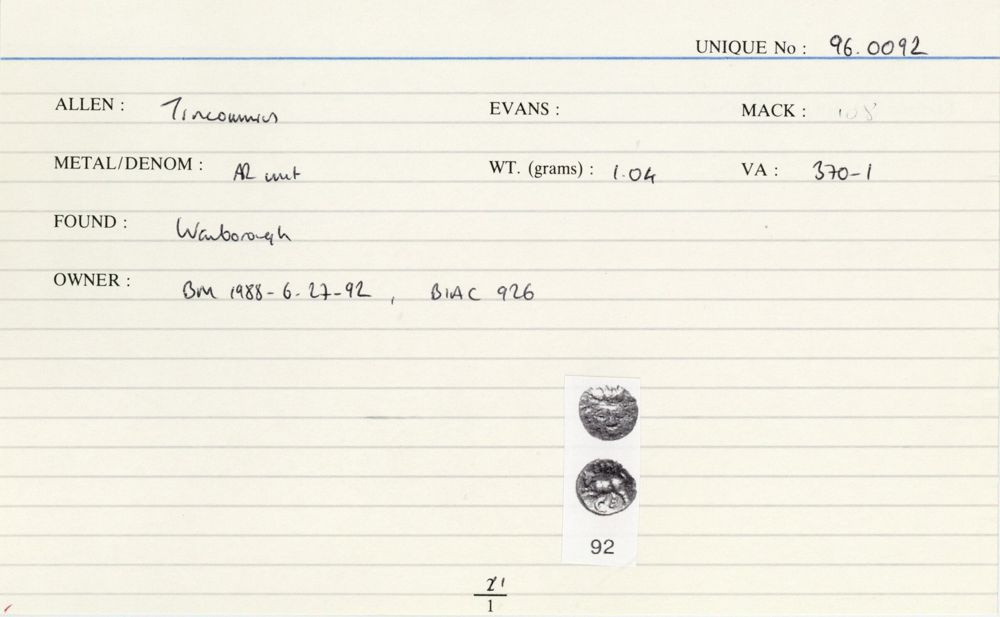 UNIQUE No : 96.0092
ALLEN : Tincommius EVANS : MACK :
METAL/DENOM : AR unit WT. (grams) : 1.04 VA : 370-1
FOUND : Wanborough
OWNER : BM 1988-6-27-92, BIAC 926
92
1